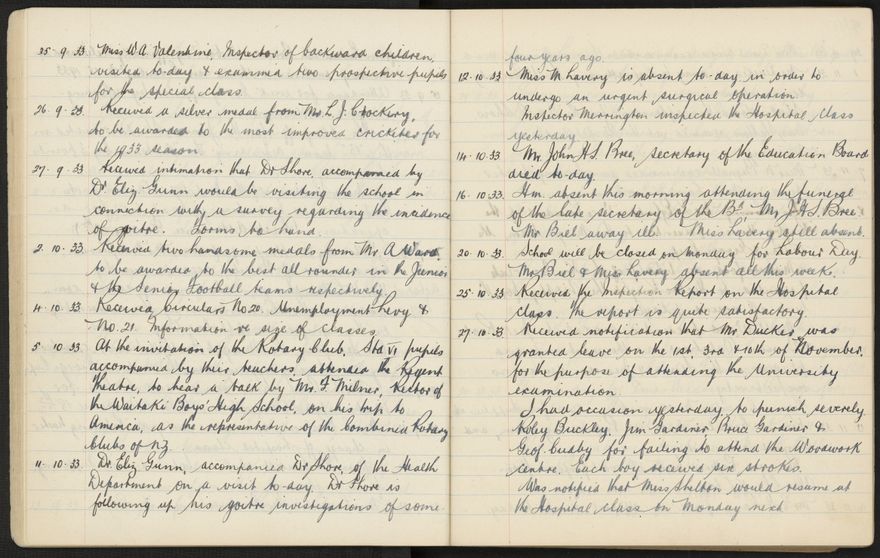 25. 9. 33. Miss W. A. Valentine, Inspector of backward children,
visited to-day & examined two prospective pupils
for the special class.
26. 9. 33. Received a silver medal from Mr. L. J. Crockery,
to be awarded to the most improved cricketer for
the 1933 season
27. 9. 33 Received intimation that Dr Shore, accompanied by
Dr Eliz. Gunn would be visiting the school in
connection with a survey regarding the incidence
of goitre. Forms to hand.
2. 10. 33. Received two handsome medals from Mr. A Ward.
to be awarded to the best all rounder in the Junior
& the Senior Football teams respectively
4. 10. 33. Received Circulars No 20. Unemployment Levy &
No. 21. Information re size of classes
5. 10. 33 At the invitation of the Rotary Club. Std VI pupils
accompanied by their teachers, attended the Regent
Theatre, to hear a talk by Mr. F. Milner, Rector of
the Waitaki Boys' High School, on his trip to
America, as the representative of the Combined Rotary
Clubs of N.Z.
11. 10. 33. Dr. Eliz. Gunn, accompanied Dr Shore, of the Health
Department on a visit to-day. Dr Shore is
following up his goitre investigations of some
four years ago.
12. 10. 33 Miss M. Lavery is absent to-day in order to
undergo an urgent surgical operation.
Inspector Merrington inspected the Hospital Class
yesterday
14. 10. 33. Mr. John H. S. Bree, secretary of the Education Board
died to-day.
16. 10. 33. H.m. absent this morning attending the funeral
of the late secretary of the Bd. Mr J. H. S. Bree
Mr Biel away ill. Miss Lavery still absent.
20. 10. 33. School will be closed on Monday for Labour Day.
Mr Biel & Miss Lavery absent all this week.
25. 10. 33 Received the Inspection Report on the Hospital
class. The report is quite satisfactory.
27. 10. 33 Received notification that Mr Ducker was
granted leave on the 1st, 3rd & 10th of November,
for the purpose of attending the University
examination.
I had occasion yesterday to punish severely
Buckley, Jim Gardiner Bruce Gardiner &
Geof. for failing to attend the Woodwork
Centre. Each boy received six strokes.
Was notified that Miss Shelton would resume at
the Hospital class on Monday next